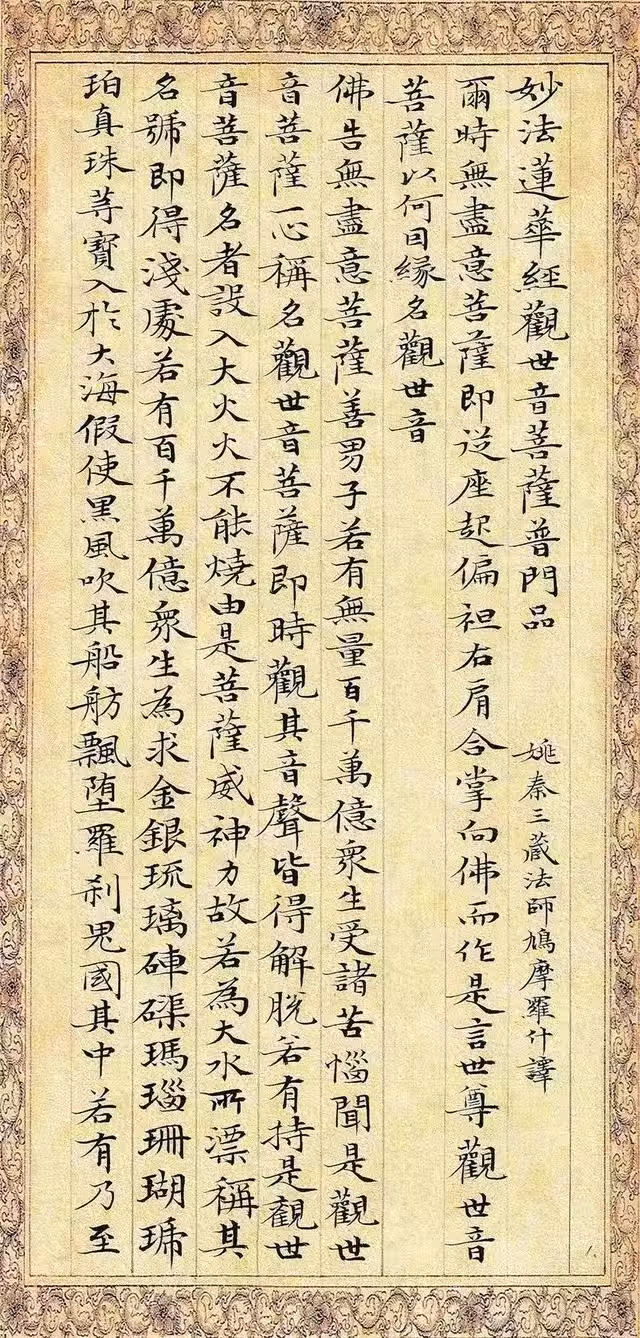 妙法蓮華經觀世音菩薩普門品 姚秦三藏法師鳩摩羅什譯
爾時無盡意菩薩即從座起偏袒右肩合掌向佛而作是言世尊觀世音
菩薩以何因緣名觀世音
佛告無盡意菩薩善男子若有無量百千萬億衆生受諸苦惱聞是觀世
音菩薩一心稱名觀世音菩薩即時觀其音聲皆得解脫若有持是觀世
音菩薩名者設入大火火不能燒由是菩薩威神力故若為大水所漂稱其
名號即得淺處若有百千萬億衆生為求金銀琉璃硨磲瑪瑙珊瑚琥
珀真珠等寶入於大海假使黑風吹其船舫飄堕羅刹鬼國其中若有乃至